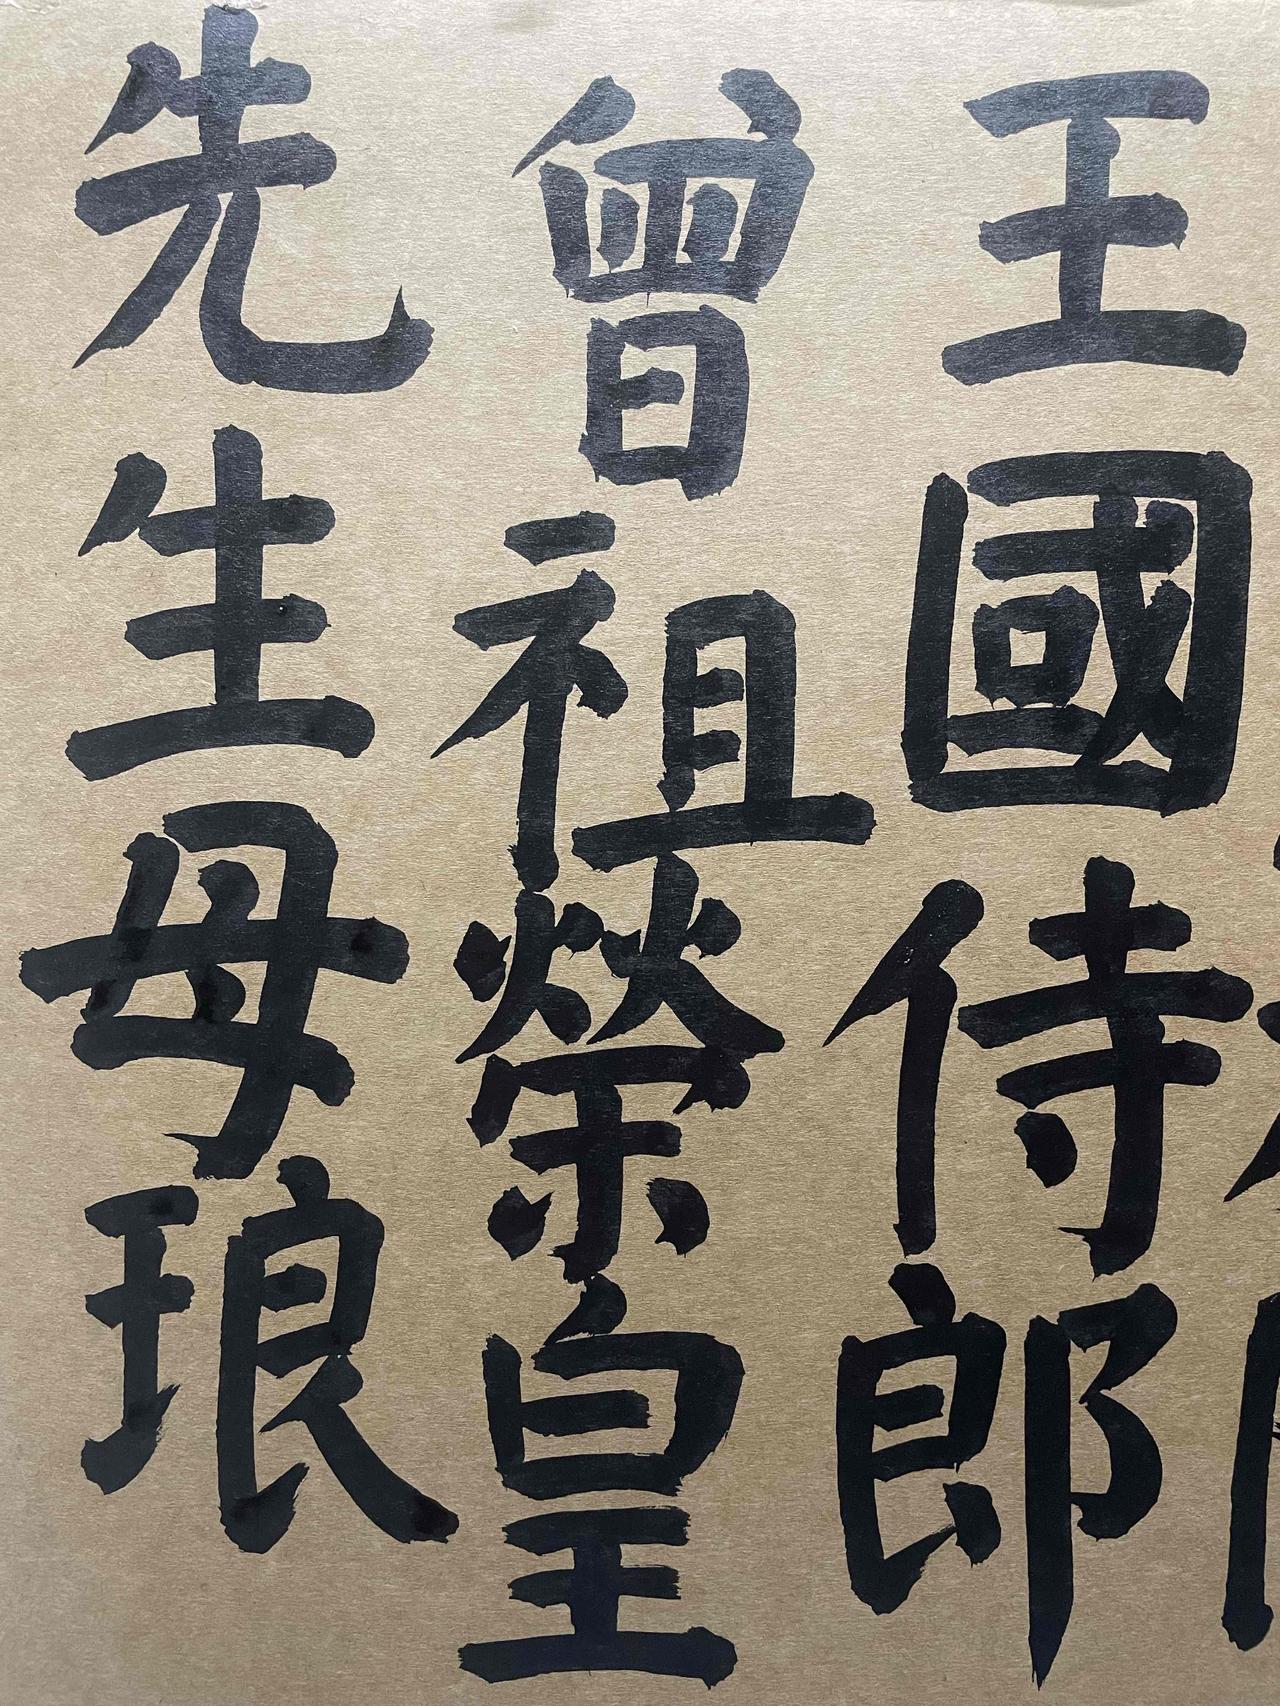 王國侍郎
曾祖榮皇
先生母琅